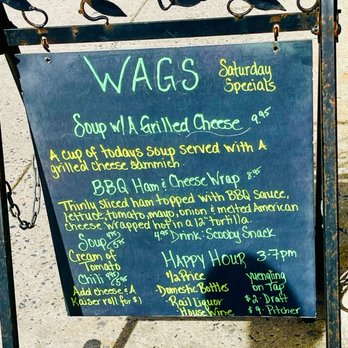 WAGS
Saturday
Specials
Soup w/ A Grilled Cheese 9.95
A cup of todays soup served with A
grilled cheese sammich.
BBQ Ham & Cheese Wrap 8.95
Thinly sliced ham topped with BBQ sauce,
lettuce, tomato, mayo, onion & melted American
cheese wrapped hot in a 12" tortilla.
Soup
4.95 Drink - Scooby Snack
Cream of
Tomato
Chili
Add cheese & A
Kaiser roll for $1
Happy Hour 3-7pm
1/2 Price
Domestic Bottles
Rail Liquor
House Wine
Yuengling
on Tap
$2 - Draft
$9 - Pitcher